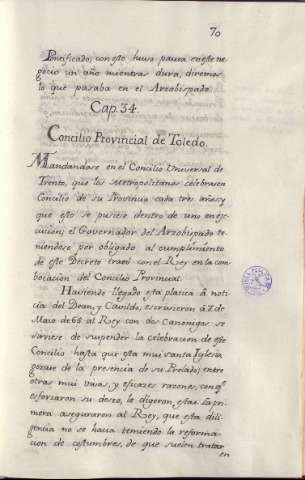 70
Pontificado; con esto huvo pausa en este ne
gocio un año mientras dura, diremos
lo que pasaba en el Arzobispado.
Cap. 34.
Concilio Provincial de Toledo.
Mandandose en el Concilio Universal de
Trento, que los Metropolitanos celebrasen
Concilio de su Provincia cada tres años, y
que esto se pusiese dentro de uno en ex͞e
cucion; el Governador del Arzobispado te
niendose por obligado al cumplimiento
de este Decreto trató con el Rey en la con
bocacion del Concilio Provincial.
Haviendo llegado esta platica â noti
cia del Dean, y Cavildo, escrivieron â 8 de
Maio de 65. al Rey con dos Canonigos se
sirviese de suspender la celebracion de este
Concilio hasta que esta mui santa Iglesia
gozase de la presencia de su Prelado; entre
otras mui vivas, y eficazes razones, con q.e
esforzaron su deseo, le digeron, estas. La pri
mera aseguraron al Rey, que esta dili
gencia no se hacia temiendo la reforma
cion de costumbres, de que suelen tratar
en